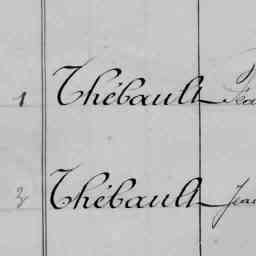 1 Thébault
3 Thébault